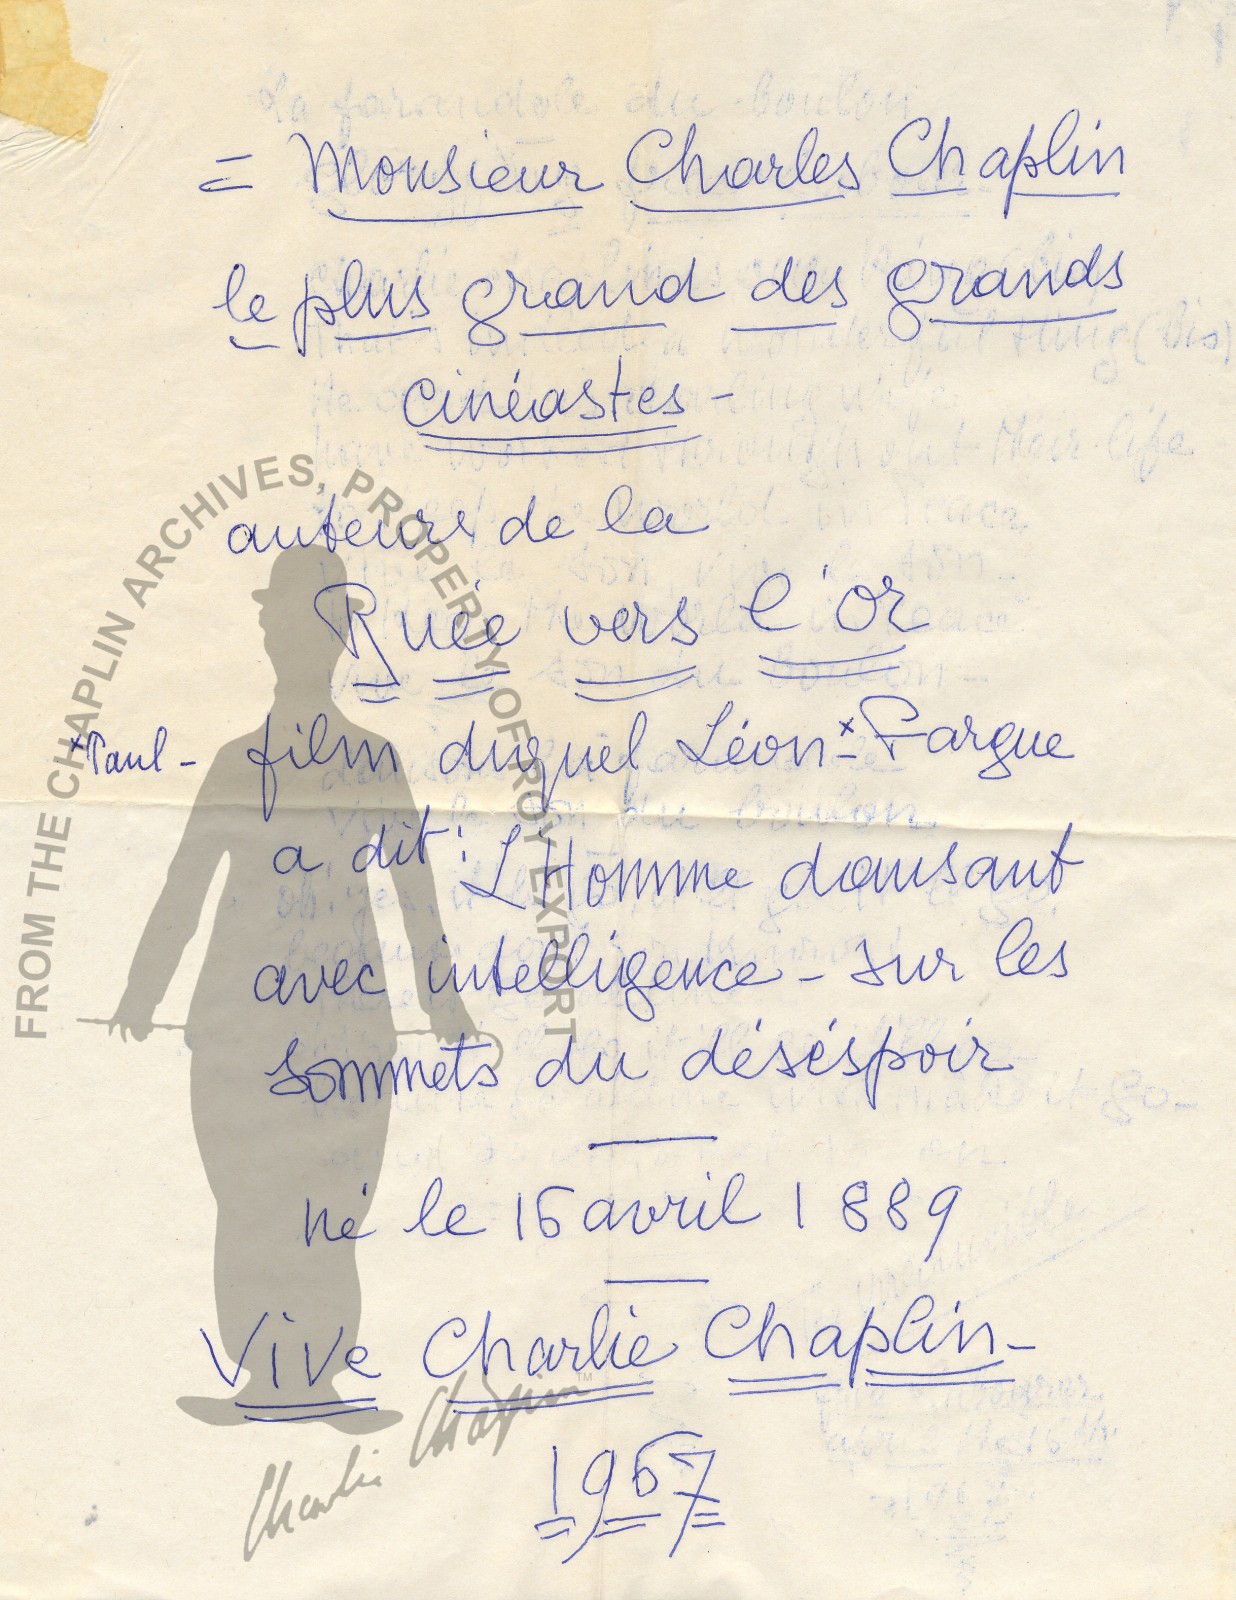 = Monsieur Charles Chaplin
le plus grand des grands
cinéastes -
auteurs de la
Ruée vers l'or
x Paul - film duquel Léon x - Fargue
a dit : L'Homme dansant
avec intelligence - sur les
sommets du déséspoir
né le 16 avril 1889
Vive Charlie Chaplin -
1967
FROM THE CHAPLIN ARCHIVES, PROPERTY OF ROY EXPORT
Charlie Chaplin TM